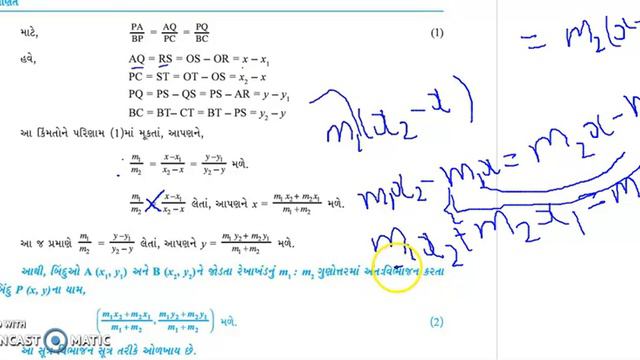 માટે, PA/BP = AQ/PC = PQ/BC (1)
હવે, AQ = RS = OS – OR = x – x₁
PC = ST = OT – OS = x₂ – x
PQ = PS – QS = PS – AR = y – y₁
BC = BT– CT = BT – PS = y₂ – y
આ કિંમતોને પરિણામ (1)માં મૂકતાં, આપણને,
m₁/m₂ = x–x₁/x₂–x = y–y₁/y₂–y મળે.
m₁/m₂ = x–x₁/x₂–x લેતાં, આપણને x = m₁x₂+m₂x₁/m₁+m₂ મળે.
આ જ પ્રમાણે m₁/m₂ = y–y₁/y₂–y લેતાં, આપણને y = m₁y₂+m₂y₁/m₁+m₂ મળે.
આથી, બિંદુઓ A (x₁, y₁) અને B (x₂, y₂)ને જોડતા રેખાખંડનું m₁ : m₂ ગુણોત્તરમાં અંતઃવિભાજન કરતા
બિંદુ P (x, y)ના યામ,
(m₁x₂+m₂x₁/m₁+m₂, m₁y₂+m₂y₁/m₁+m₂) મળે. (2)
આ સૂત્ર વિભાજન સૂત્ર તરીકે ઓળખાય છે.
= m₂(x–
m₁(x₂–x)
m₁x₂–m₁x = m₂x–m
m₁x₂+m₂x₁ = m
ED WITH
NCAST MATIC